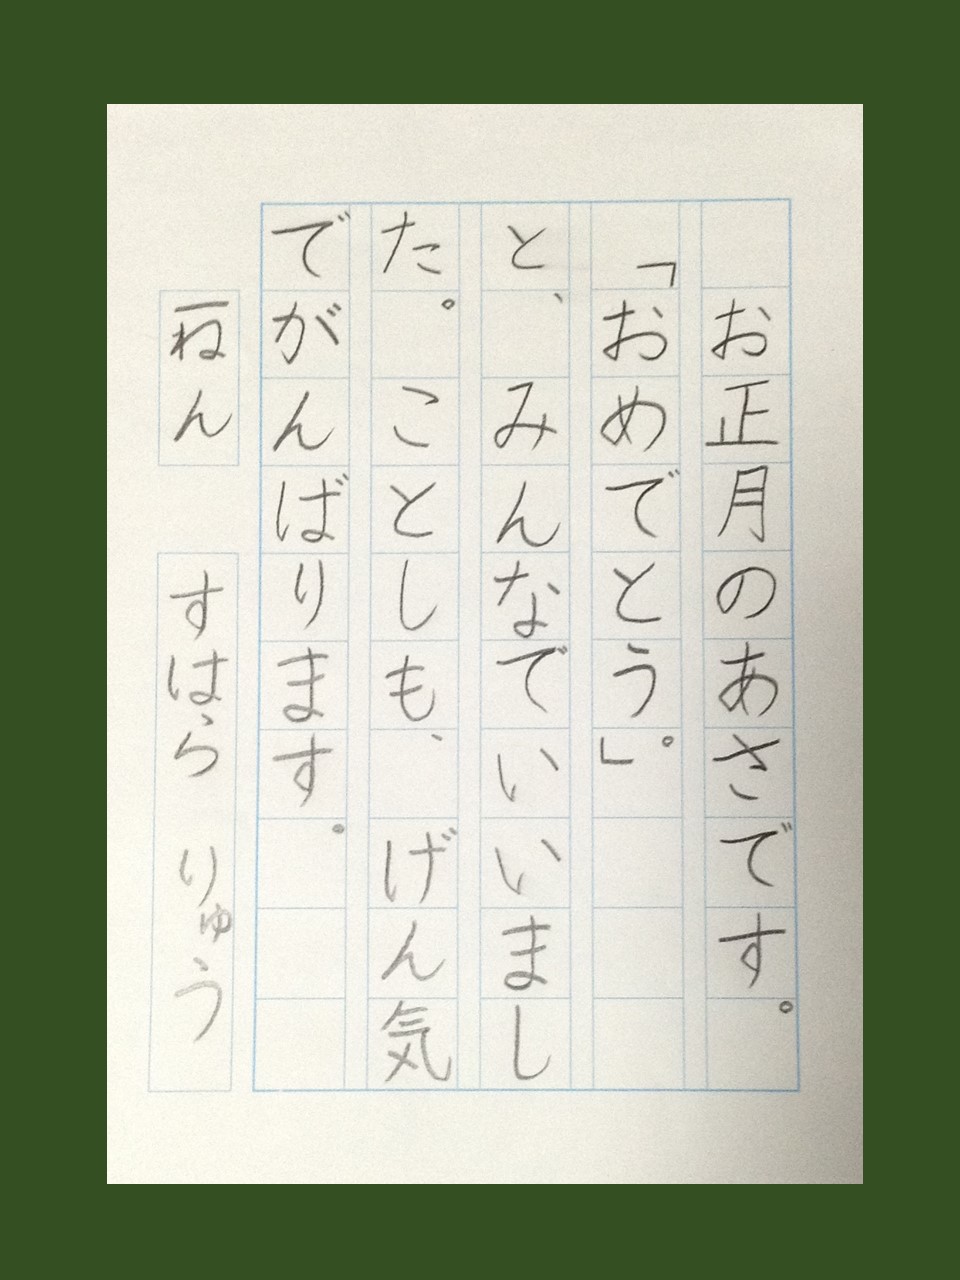 お正月のあさです。
「おめでとう。」
と、みんなでいいまし
た。ことしも、げん気
でがんばります。
一ねん すはら りゅう